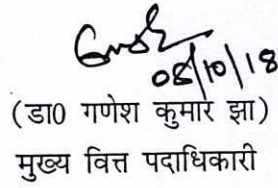 08/10/18
(डा0 गणेश कुमार झा)
मुख्य वित्त पदाधिकारी